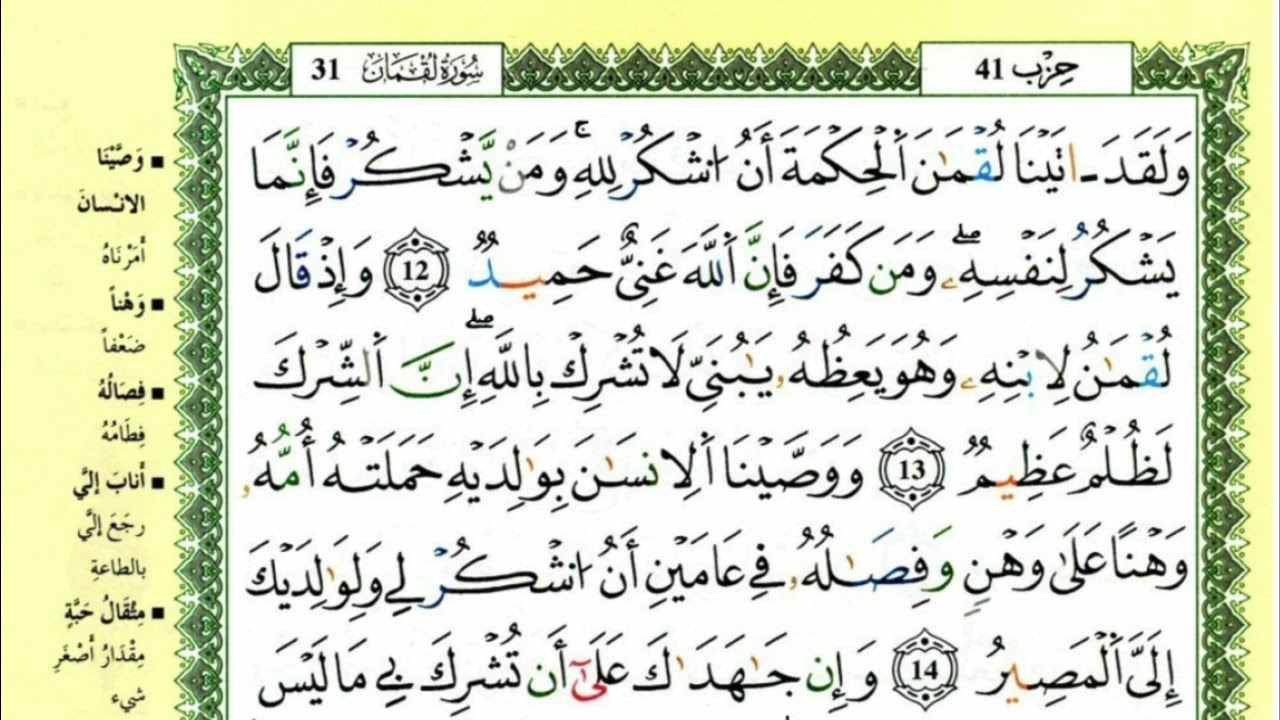 حِزْب 41
سُورَةُ لُقْمَان 31
وَلَقَدَ ـ اتَيْنَا لُقْمَٰنَ اَ۬لْحِكْمَةَ أَنُ اُ۟شْكُرْ لِلهِۖ وَمَنْ يَّشْكُرْ فَإِنَّمَا
يَشْكُرُ لِنَفْسِهِۦۖ وَمَن كَفَرَ فَإِنَّ اَ۬للَّهَ غَنِيٌّ حَمِيدٌۖ 12 وَإِذْ قَالَ
لُقْمَٰنُ لِابْنِهِۦ وَهُوَ يَعِظُهُۥ يَٰبُنَيِّ لَا تُشْرِكْ بِاللَّهِۖ إِنَّ اَ۬لشِّرْكَ
لَظُلْمٌ عَظِيمٌۖ 13 وَوَصَّيْنَا اَ۬لِانسَٰنَ بِوَٰلِدَيْهِ حَمَلَتْهُ أُمُّهُۥ
وَهْناً عَلَىٰ وَهْنٍ وَفِصَٰلُهُۥ فِے عَامَيْنِ أَنُ اُ۟شْكُرْ لِے وَلِوَٰلِدَيْكَ
إِلَيَّ اَ۬لْمَصِيرُ 14 وَإِن جَٰهَدَٰكَ عَلَىٰٓ أَن تُشْرِكَ بِے مَا لَيْسَ
■ وَصَّيْنَا
الانْسانَ
أَمَرْنَاهُ
■ وَهْناً
ضَعْفاً
■ فِصَالُهُ
فِطَامُهُ
■ أَنابَ إِلَيَّ
رجَعَ إِلَيَّ
بالطاعةِ
■ مِثقَالُ حَبَّةٍ
مِقْدَارُ أَصْغَرِ
شيء